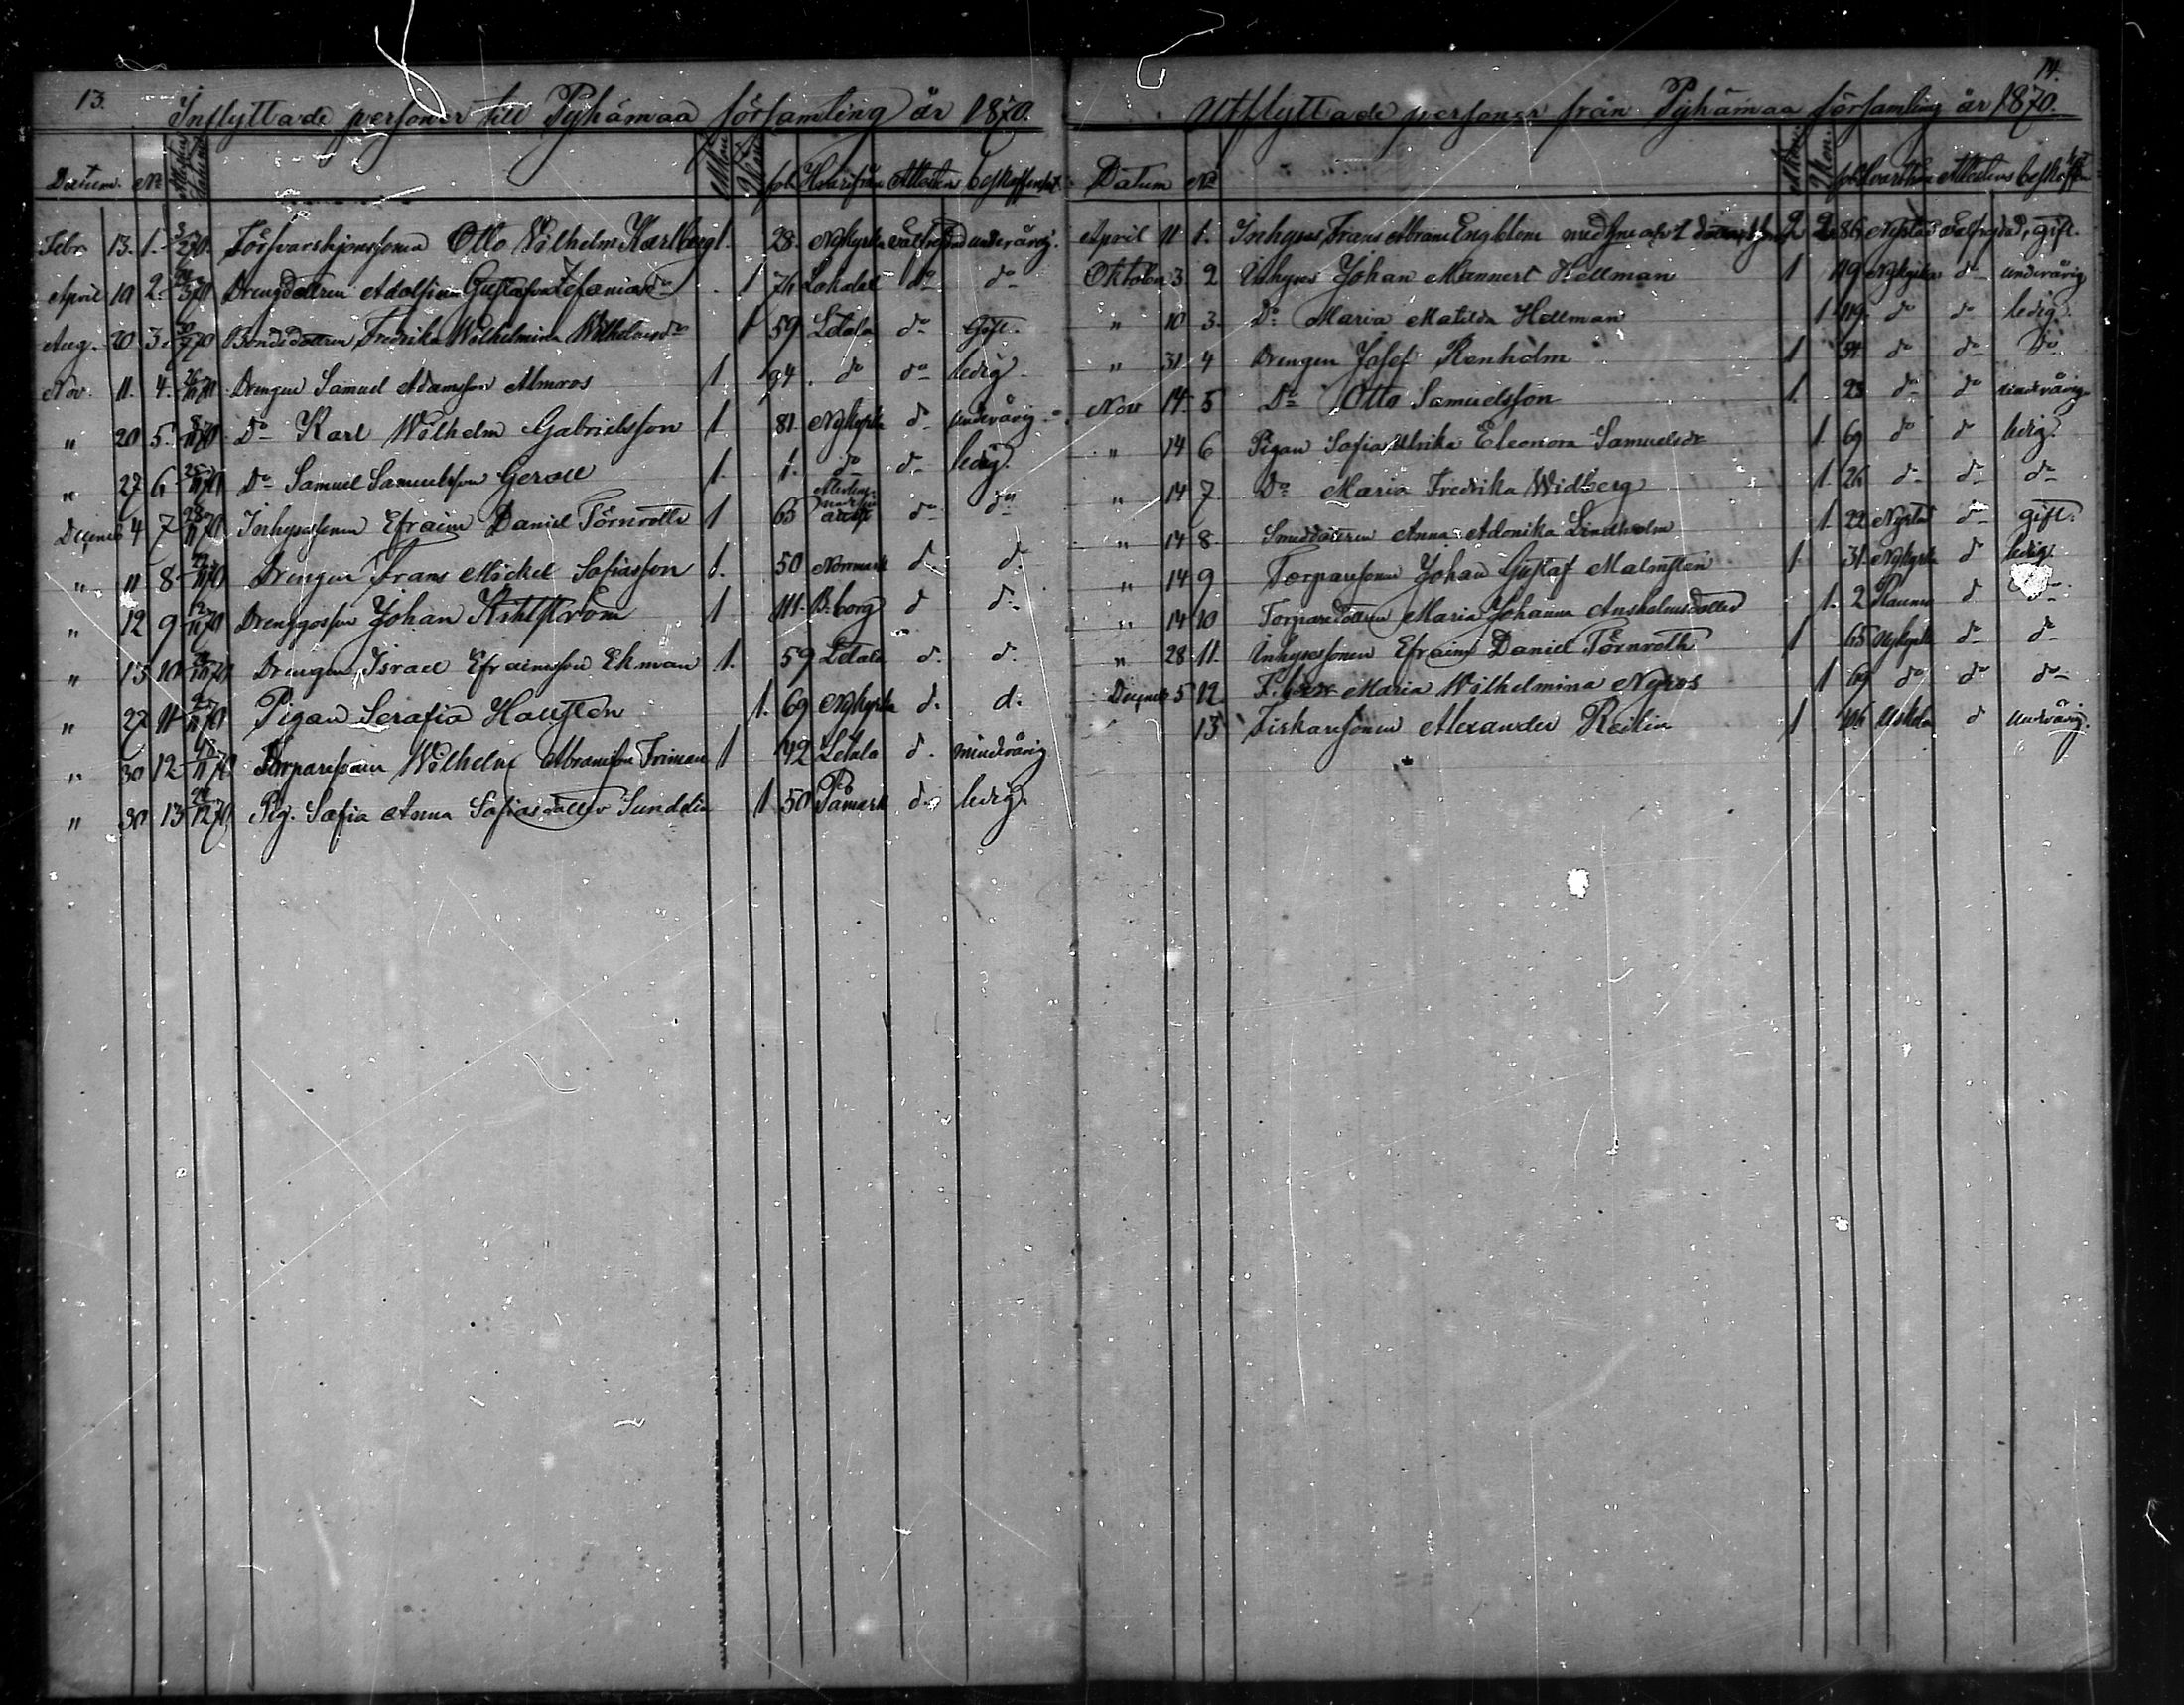 13.
Inflyttade personer till Pyhämaa församling år 1870.
Datum. No Mkön Qkön fol. Hvarifrån Attestens beskaffenhet
Febr. 13. 1. 3/2 70. Försvarskjonssonen Otto Wilhelm Karlberg 1. 28. Nykyrka välfrejdad undervårig.
April 10 2. 3 70 Drengdottren Adolfina Gustafva Zefaniasdr 1 74 Lokalat do do
Aug. 20 3. 70 Bondedottren Fredrika Wilhelmina Wilhelmsdr 1 59 Letala do Gift.
Nov. 11. 4. 26/10 70 Drengen Samuel Adamsson Almros 1. 94. do do ledig
" 20 5. 8/11 70 Do Karl Wilhelm Gabrielsson 1. 81. Nykyrka do undervårig
" 27 6. 25/11 70 Do Samuel Samuelsson Gerall 1. 1. do do ledig.
Decemb 4 7 28/11 70 Inhysessonen Efraim Daniel Törnroth 1 65 do do
" 11 8 11 70 Drengen Frans Mickel Sofiasson 1. 50 Norrmark do do
" 12 9 12/11 70 Drenggossen Johan Kihlström 1 111. B.borg do do
" 13 10 11 70 Drengen Israel Efraimsson Ekman 1. 59 Letala do do
" 27 11 11 70 Pigan Serafia Hougsten 1. 69 Nykyrka do do
" 30 12 11 70 Torparesonen Wilhelm Abramsson Friman 1 42 Letala do mindrårig
" 30 13 24/12 70 Pig. Sofia Anna Sofiasdotter Sundelin 1 50 Påmark do ledig.
14.
Utflyttade personer från Pyhämaa församling år 1870.
Datum No Mkön. Qkön. fol. hvarthän Attestens beskaffenhet
April 11 1. Inhyses Frans Abram Engblom med hu o 1 2 2 86 Nystad välfrejdad, gift.
Oktober 3 2 Inhyses Johan Mannert Hellman 1 119 Nykyrka do undervårig
" 10 3. Do Maria Matilda Hellman 1 119. do do ledig.
" 31 4 Drengen Josef Renholm 1 54 do do Do
Nov 14 5 Do Otto Samuelsson 1. 23 do do undervårig
" 14 6 Pigan Sofia Ulrika Eleonora Samuelsdr 1. 69 do do ledig.
" 14 7. Do Maria Fredrika Widberg 1. 26 do do do
" 14 8. Smeddottren Anna Adonika Lindholm 1. 22 Nystad do gift.
" 14 9 Torparesonen Johan Gustaf Malmsten 1. 31. Nykyrka do ledig.
" 14 10 Torparedottren Maria Johanna Anshelmsdotter 1. 2 Raumo do do
" 28 11. Inhysessonen Efraim Daniel Törnroth 1 65 Nykyrka do do
Decemb 5 12 Maria Wilhelmina Nyros 1 69 do do do
13 Fiskaresonen Alexander Reilin 1 106 do undervårig.